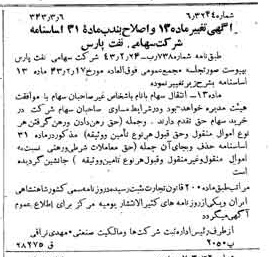 شماره ۶/۳۲۴۴ ۳۴۳/۳/۶
آگهی تغییر ماده ۱۳ و اصلاح بند ب ماده ۳۱ اساسنامه
شرکت سهامی نفت پارس
طبق نامه شماره ۷۳۸/رب - ۴۳/۲/۲۴ شرکت سهامی نفت پارس
بپیوست صورتجلسه مجمع عمومی فوق‌العاده مورخ ۴۳/۲/۱۷ ماده ۱۳
اساسنامه بشرح زیر تغییر نموده
ماده ۱۳- انتقال سهام بانام باشخاص غیر صاحبان سهام با موافقت
هیئت مدیره خواهد بود ودر شرایط مساوی صاحبان سهام شرکت در
خرید سهام حق تقدم دارند. وجمله (حق رهن دادن ورهن گرفتن هر
نوع اموال منقول وحق قبول هر نوع تأمین ووثیقه) مذکور در ماده ۳۱
اساسنامه حذف وبجای آن جمله (حق معاملات شرطی ورهنی نسبت به
اموال منقول وغیر منقول وقبول هر نوع تأمین ووثیقه) جانشین گردیده
است
مراتب طبق ماده ۲۰۰ قانون تجارت بثبت رسیده در روزنامه رسمی کشور شاهنشاهی
ایران ویکی از روزنامه های کثیرالانتشار یومیه مرکز برای اطلاع عموم
آگهی میگردد
از طرف رئیس اداره ثبت شرکت‌ها ومالکیت صنعتی - مهدی نراقی
پ ۲۰۵۰ ق ۲۸۲۷۵